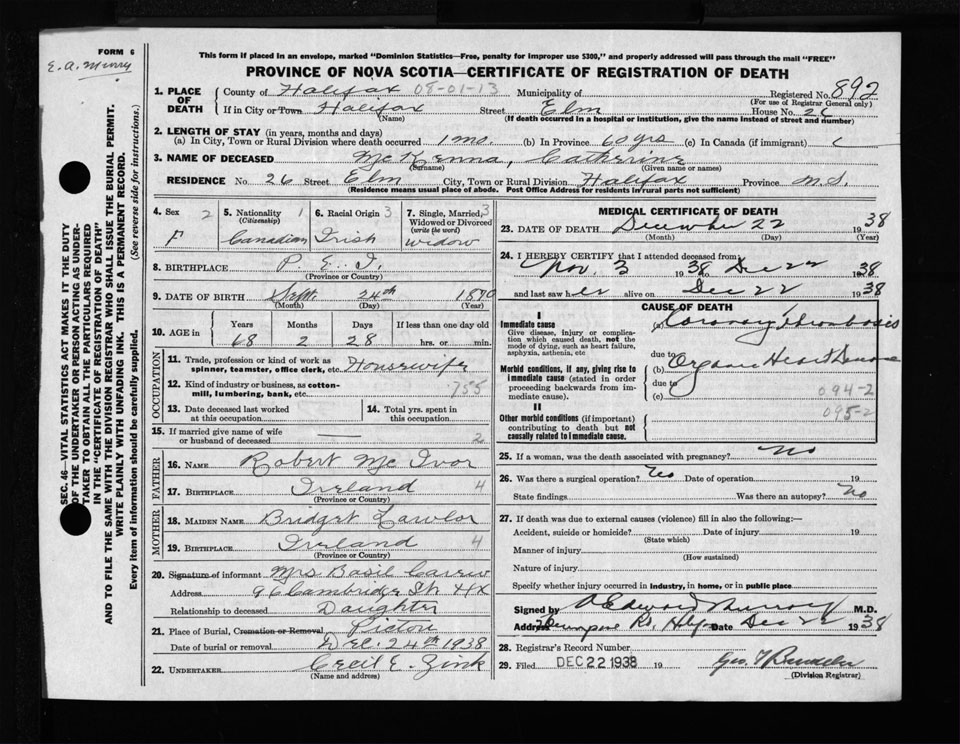 FORM 6
E. A. Murry
This form if placed in an envelope, marked "Dominion Statistics—Free, penalty for improper use $300," and properly addressed will pass through the mail "FREE"
PROVINCE OF NOVA SCOTIA—CERTIFICATE OF REGISTRATION OF DEATH
1. PLACE OF DEATH County of Halifax 08-01-13 Municipality of Registered No. 892
(For use of Registrar General only)
If in City or Town Halifax Street Elm House No. 26
(Name) (If death occurred in a hospital or institution, give the name instead of street and number)
2. LENGTH OF STAY (in years, months and days)
(a) In City, Town or Rural Division where death occurred 1 mo. (b) In Province 60 yrs (c) In Canada (if immigrant)
3. NAME OF DECEASED McKenna, Catherine
(Surname) (Given name or names)
RESIDENCE No. 26 Street Elm City, Town or Rural Division Halifax Province N.S.
(Residence means usual place of abode. Post Office Address for residents in rural parts not sufficient)
4. Sex 2 5. Nationality 1 6. Racial Origin 3 7. Single, Married, 3
(Citizenship) Widowed or Divorced
(write the word)
F Canadian Irish widow
8. BIRTHPLACE P. E. I.
(Province or Country)
9. DATE OF BIRTH Sept. 24th 1870
(Month) (Day) (Year)
10. AGE in Years Months Days If less than one day old
68 2 28 hrs. or min.
OCCUPATION
11. Trade, profession or kind of work as
spinner, teamster, office clerk, etc. Housewife
12. Kind of industry or business, as cotton-
mill, lumbering, bank, etc. 755
13. Date deceased last worked
at this occupation
14. Total yrs. spent in
this occupation
15. If married give name of wife
or husband of deceased — 2
FATHER
16. NAME Robert McIvor
17. BIRTHPLACE Ireland 4
(Province or Country)
MOTHER
18. MAIDEN NAME Bridget Lawlor
19. BIRTHPLACE Ireland 4
(Province or Country)
20. Signature of informant Mrs Basil Carew
Address 96 Cambridge St. HX
Relationship to deceased Daughter
21. Place of Burial, Cremation or Removal Pictou
Date of burial or removal Dec. 24th 1938
22. UNDERTAKER Cecil E. Zink
(Name and address)
MEDICAL CERTIFICATE OF DEATH
23. DATE OF DEATH December 22 1938
(Month) (Day) (Year)
24. I HEREBY CERTIFY that I attended deceased from
Nov. 3 1938 to Dec 22 1938
and last saw her alive on Dec 22 1938
CAUSE OF DEATH
I
Immediate cause
Give disease, injury or complica-
tion which caused death, not the
mode of dying, such as heart failure,
asphyxia, asthenia, etc
(a) Coronary Thrombosis
due to
Morbid conditions, if any, giving rise to
immediate cause (stated in order
proceeding backwards from im-
mediate cause).
(b) Organic Heart Disease
due to
(c) 094-2
II
095-2
Other morbid conditions (if important)
contributing to death but not
causally related to immediate cause.
25. If a woman, was the death associated with pregnancy? No
26. Was there a surgical operation? No Date of operation 19
State findings Was there an autopsy? No
27. If death was due to external causes (violence) fill in also the following:—
Accident, suicide or homicide? Date of injury 19
(State which)
Manner of injury
(How sustained)
Nature of injury
Specify whether injury occurred in industry, in home, or in public place
Signed by A Edward Murray M.D.
Address Rd. Hfx Date Dec 22 1938
28. Registrar's Record Number
29. Filed DEC 22 1938 19
(Division Registrar)
SEC. 46—VITAL STATISTICS ACT MAKES IT THE DUTY
OF THE UNDERTAKER OR PERSON ACTING AS UNDER-
TAKER TO OBTAIN ALL THE PARTICULARS REQUIRED
IN THE "CERTIFICATE OF REGISTRATION OF DEATH"
AND TO FILE THE SAME WITH THE DIVISION REGISTRAR WHO SHALL ISSUE THE BURIAL PERMIT.
WRITE PLAINLY WITH UNFADING INK. THIS IS A PERMANENT RECORD.
Every item of information should be carefully supplied. (See reverse side for instructions.)